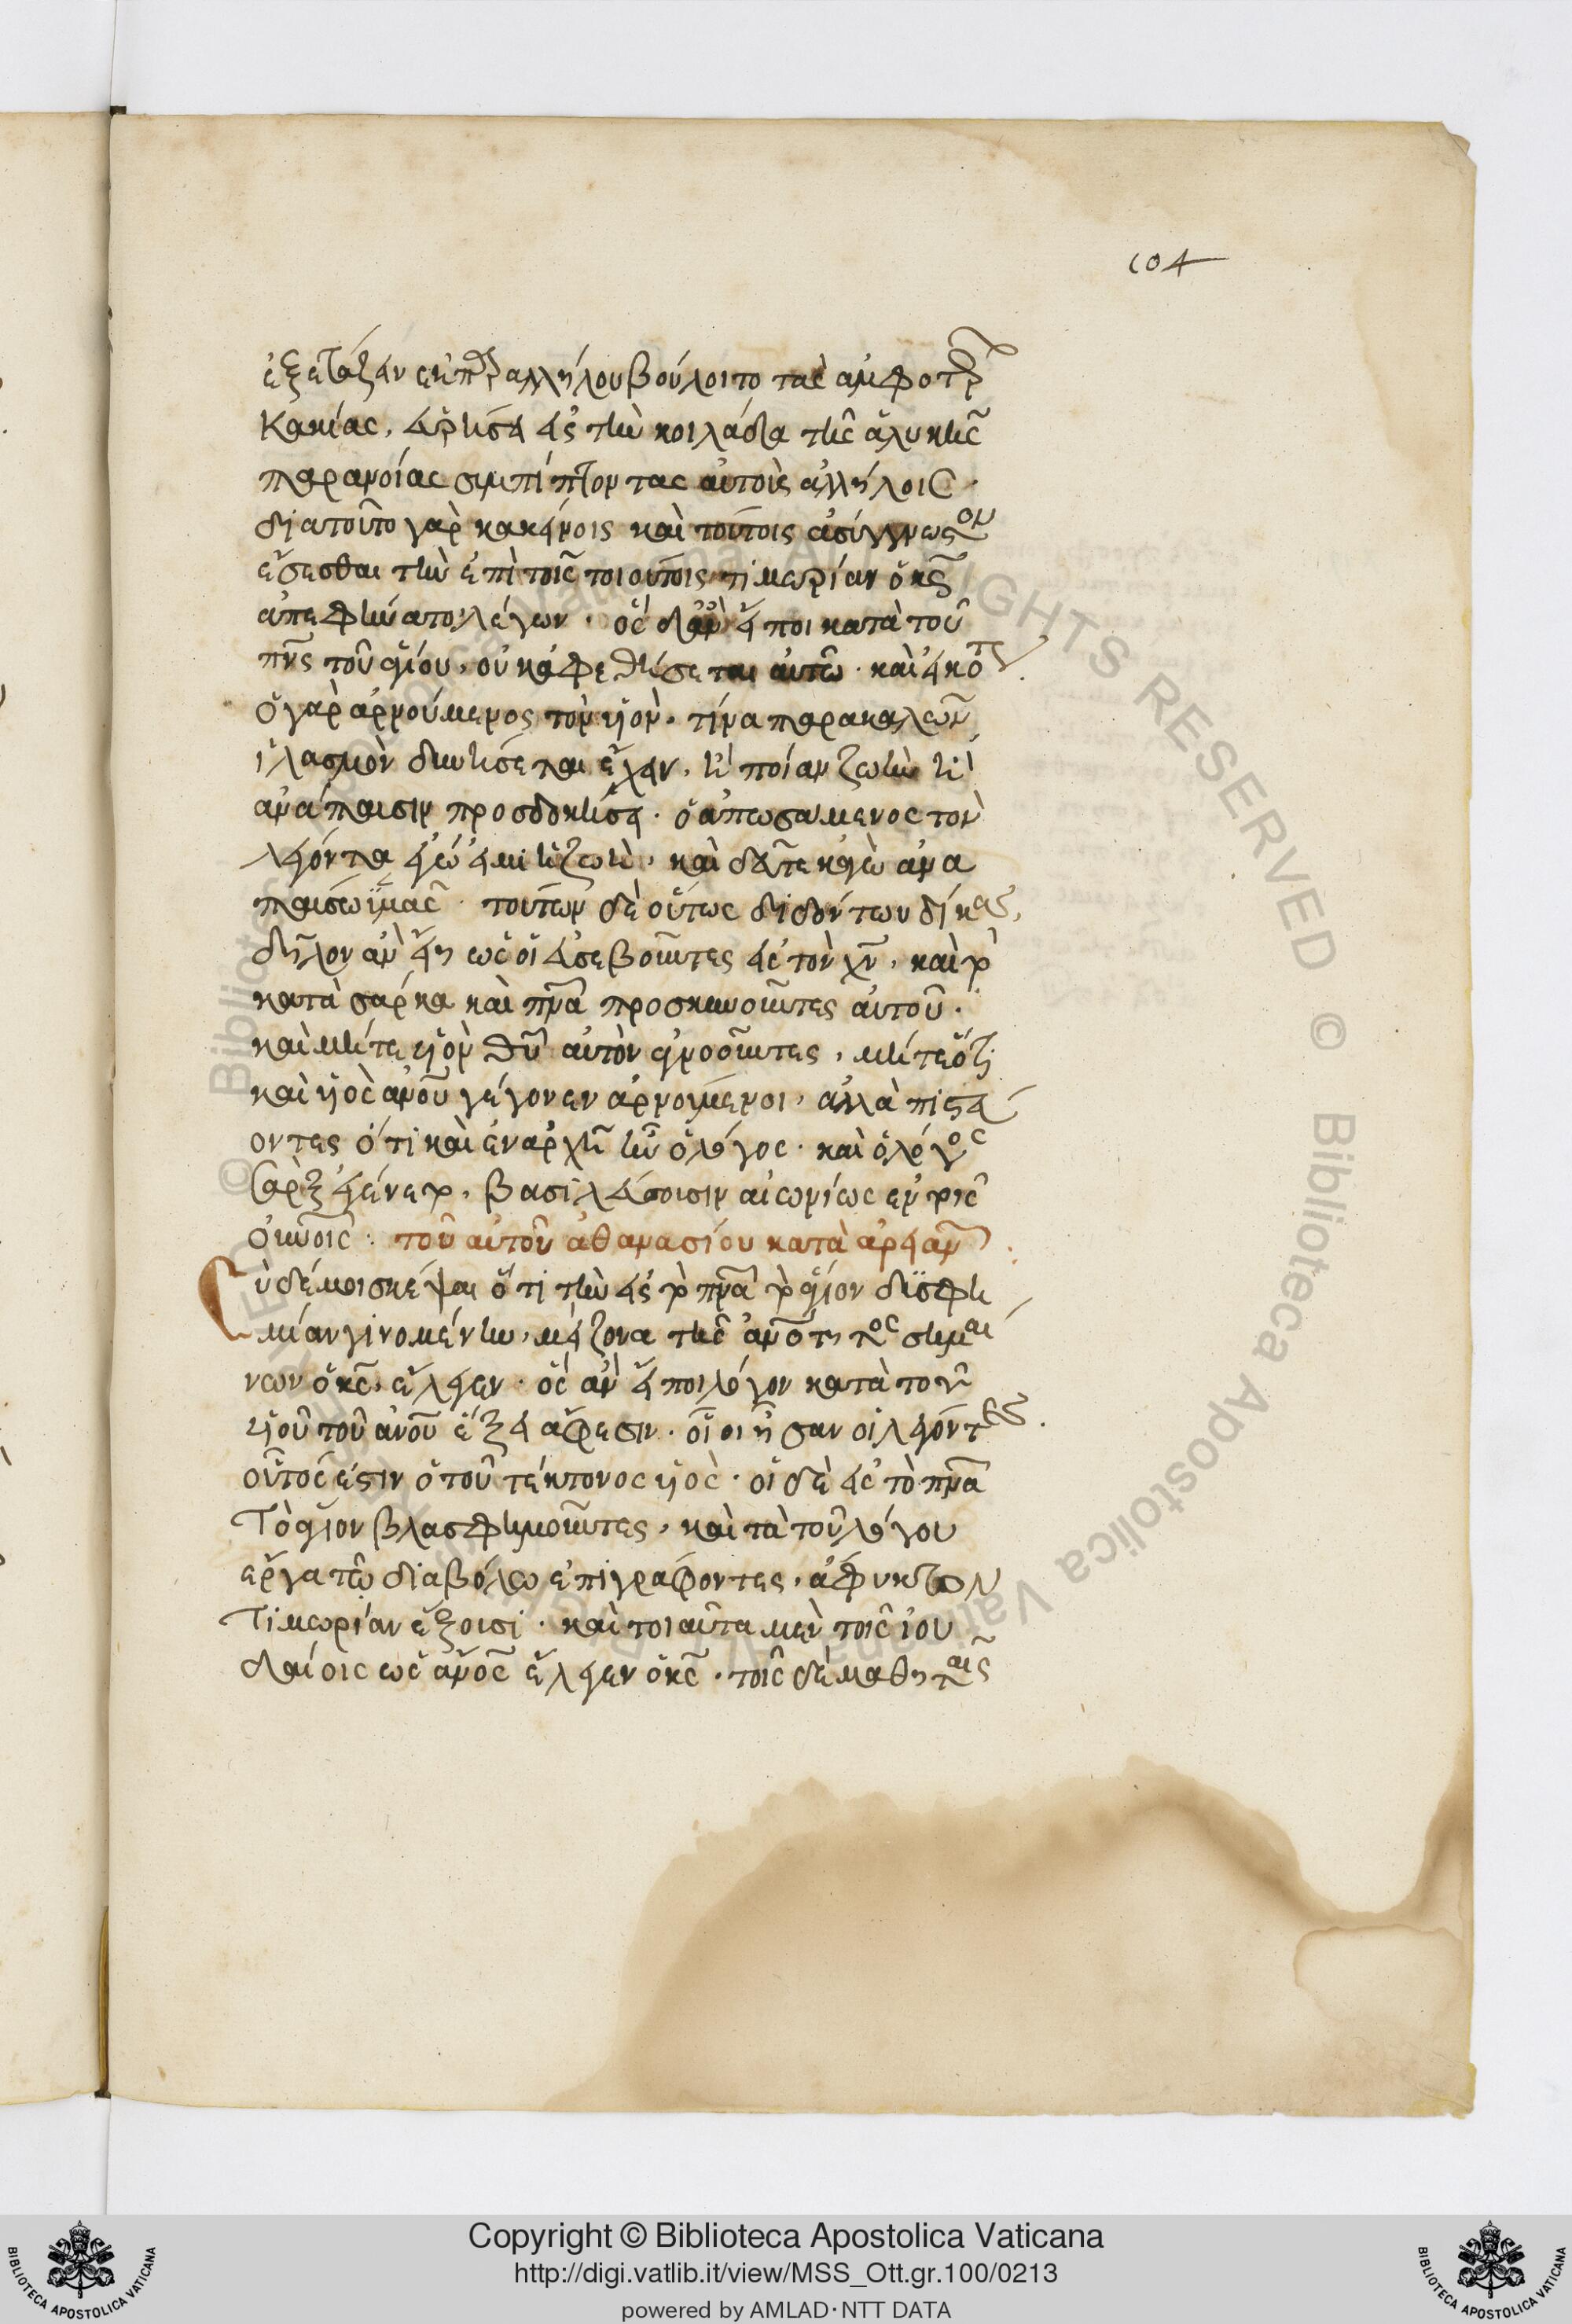 104
ἐξετάζειν ἐκ παραλλήλου βούλοιτο τὰς ἀμφοτέρων
κακίας, εὑρήσει εἰς τὴν κοιλάδα τῆς ἁλυκῆς
παρανοίας συμπίπτοντας αὐτοὺς ἀλλήλοις·
διατοῦτο γὰρ κακείνοις καὶ τούτοις ἀσύγγνωστον
ἔσεσθαι τὴν ἐπὶ τοῖς τοιούτοις τιμωρίαν ὁ κς
ἀπεφήνατο λέγων· ὃς δ' ἂν εἴποι κατὰ τοῦ
πνς τοῦ ἁγίου, οὐκ ἀφεθήσεται αὐτῶ· καὶ εἰκότως.
ὁ γὰρ ἀρνούμενος τὸν υἱὸν, τίνα παρακαλεῶν
ἱλασμὸν δυνήσεται ἔχειν, ἢ ποίαν ζωὴν ἢ
ἀνάπαυσιν προσδοκήσει· ὁ ἀπωσάμενος τὸν
λέγοντα ἐγώ εἰμι ἡ ζωὴ, καὶ δεῦτε κἀγὼ ἀνα
παύσω ὑμᾶς· τούτων δὲ οὕτως διδόντων δίκας,
δῆλον ἂν εἴη ὡς οἱ εὐσεβοῦντες εἰς τὸν χν, καὶ τὸ
κατὰ σάρκα καὶ πνα προσκυνοῦντες αὐτοῦ·
καὶ μήτε υἱὸν θυ αὐτὸν ἀγνοοῦντες, μήτε ὅτι
καὶ υἱὸς ἀνου γέγονεν ἀρνούμενοι, ἀλλὰ πιστεύ
οντες ὅτι καὶ ἐν ἀρχῆ ἦν ὁ λόγος· καὶ ὁ λόγος
σὰρξ ἐγένετο, βασιλεύσουσιν αἰωνίως ἐν τοῖς
οὐνοις· τοῦ αὐτοῦ ἀθανασίου κατὰ ἀρειανῶν:
Σὺ δέ μοι σκέψαι ὅτι τὴν εἰς τὸ πνα τὸ ἅγιον δυσφη
μίαν γινομένην, μείζονα τῆς ἀνοτητος σημαί
νων ὁ κς, ἔλεγεν· ὃς ἂν εἴποι λόγον κατὰ τοῦ
υἱοῦ τοῦ ἀνου ἕξει ἄφεσιν· οἷοι ἦσαν οἱ λέγοντες.
οὗτός ἐστιν ὁ τοῦ τέκτονος υἱὸς· οἱ δὲ εἰς τὸ πνα
τὸ ἅγιον βλασφημοῦντες, καὶ τὰ τοῦ λόγου
ἔργα τῶ διαβόλω ἐπιγράφοντες, ἄφυκτον
τιμωρίαν ἕξουσι· καὶ τοιαῦτα μὲν τοῖς ἰου
δαίοις ὡς ἀνος ἔλεγεν ὁ κς· τοῖς δὲ μαθηταῖς
Copyright © Biblioteca Apostolica Vaticana
http://digi.vatlib.it/view/MSS_Ott.gr.100/0213
powered by AMLAD·NTT DATA
BIBLIOTECA APOSTOLICA VATICANA
BIBLIOTECA APOSTOLICA VATICANA